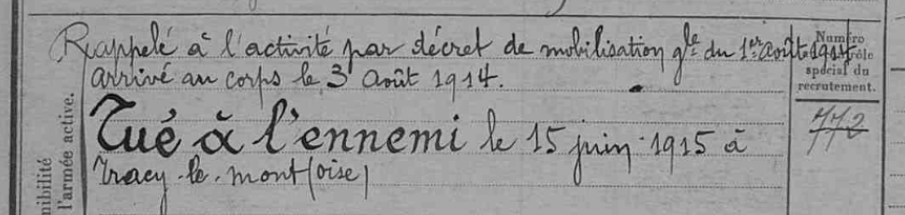 Rappelé à l'activité par décret de mobilisation gle du 1er août 1914
arrivé au corps le 3 Août 1914.
Tué à l'ennemi le 15 juin 1915 à
Tracy-le-mont (oise)
Numéro
spécial du
recrutement.
772
nibilité
l'armée active.